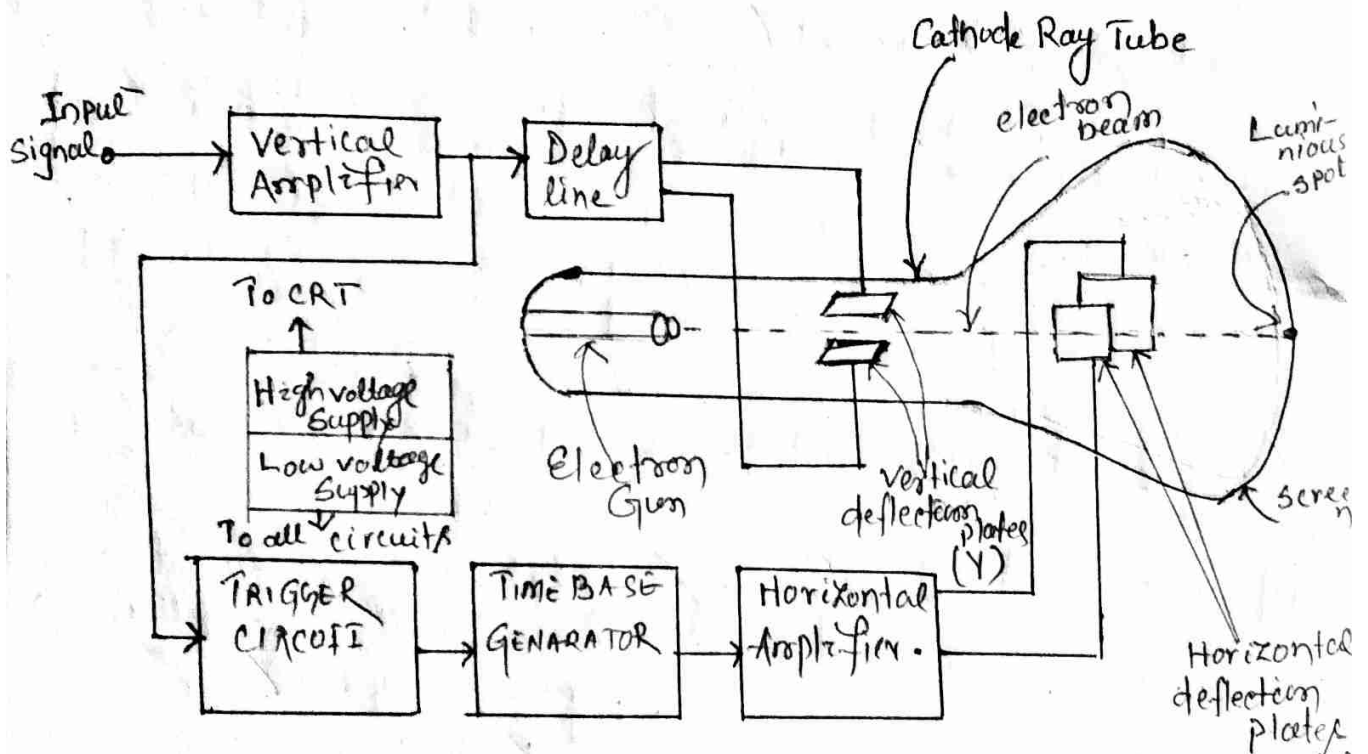 Cathode Ray Tube
Input
Signal
Vertical
Amplifier
Delay
line
electron
beam
Lumi-
nious
spot
To CRT
High voltage
Supply
Low voltage
Supply
To all circuits
Electron
Gun
vertical
deflection
plates
(Y)
scree
n
TRIGGER
CIRCUIT
TIME BASE
GENARATOR
Horizontal
Amplifier.
Horizontal
deflection
plates